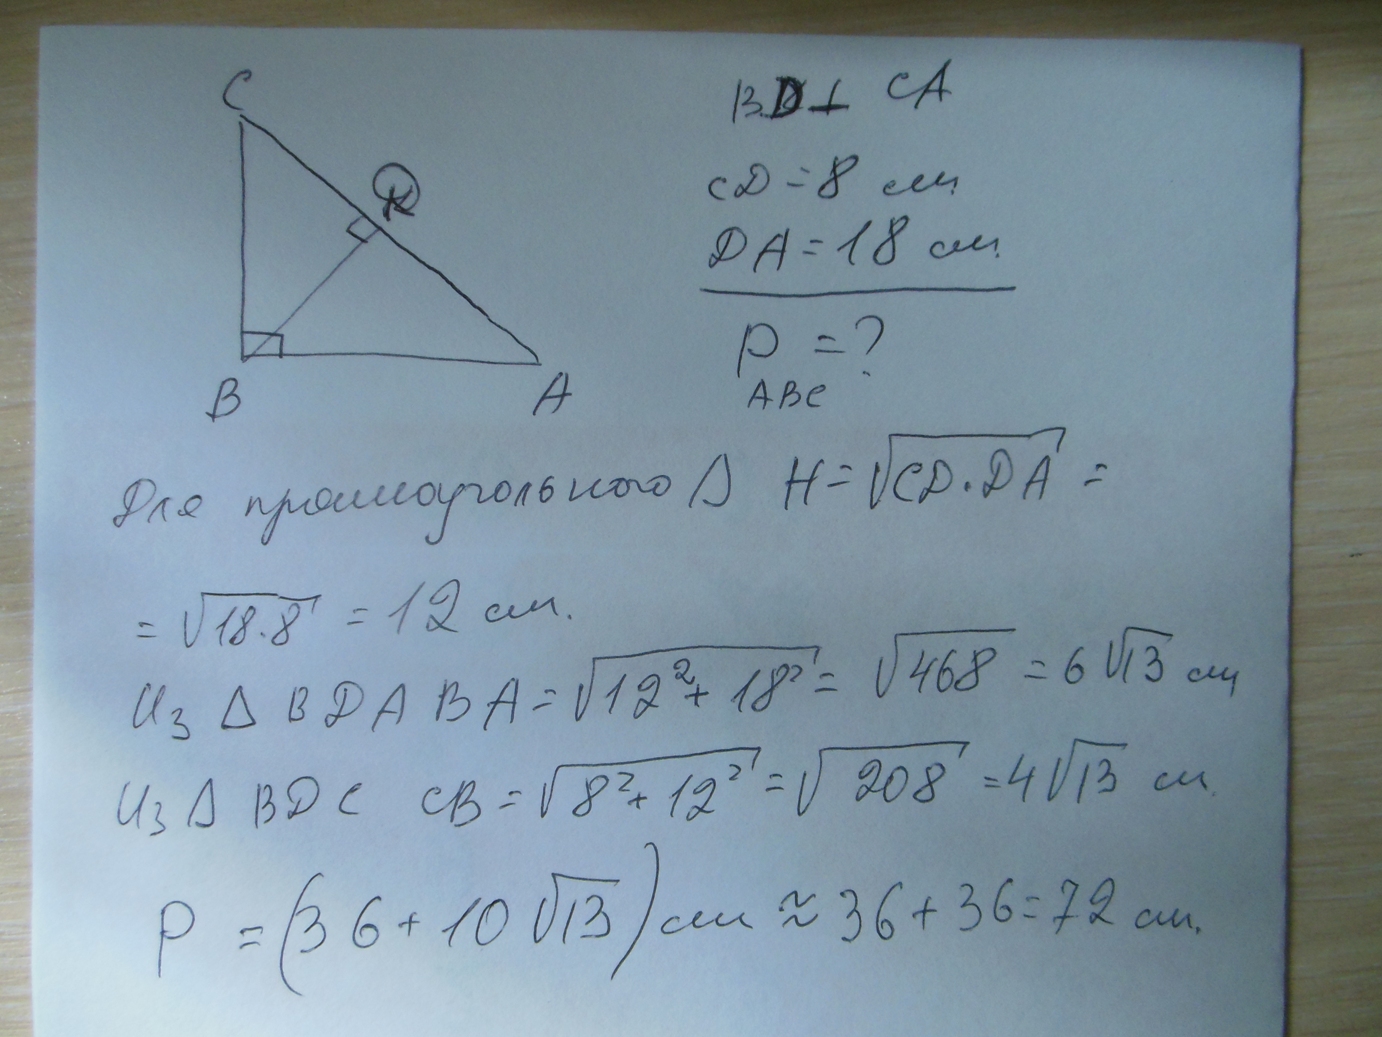 C
K
B
A
BD ⊥ CA
CD = 8 см
DA = 18 см.
P = ?
ABC
Для прямоугольного Δ H = √CD·DA =
= √18·8 = 12 см.
Из Δ BDA BA = √12²+18² = √468 = 6√13 см
Из Δ BDC CB = √8²+12² = √208 = 4√13 см.
P = (36+10√13) см ≈ 36+36=72 см.